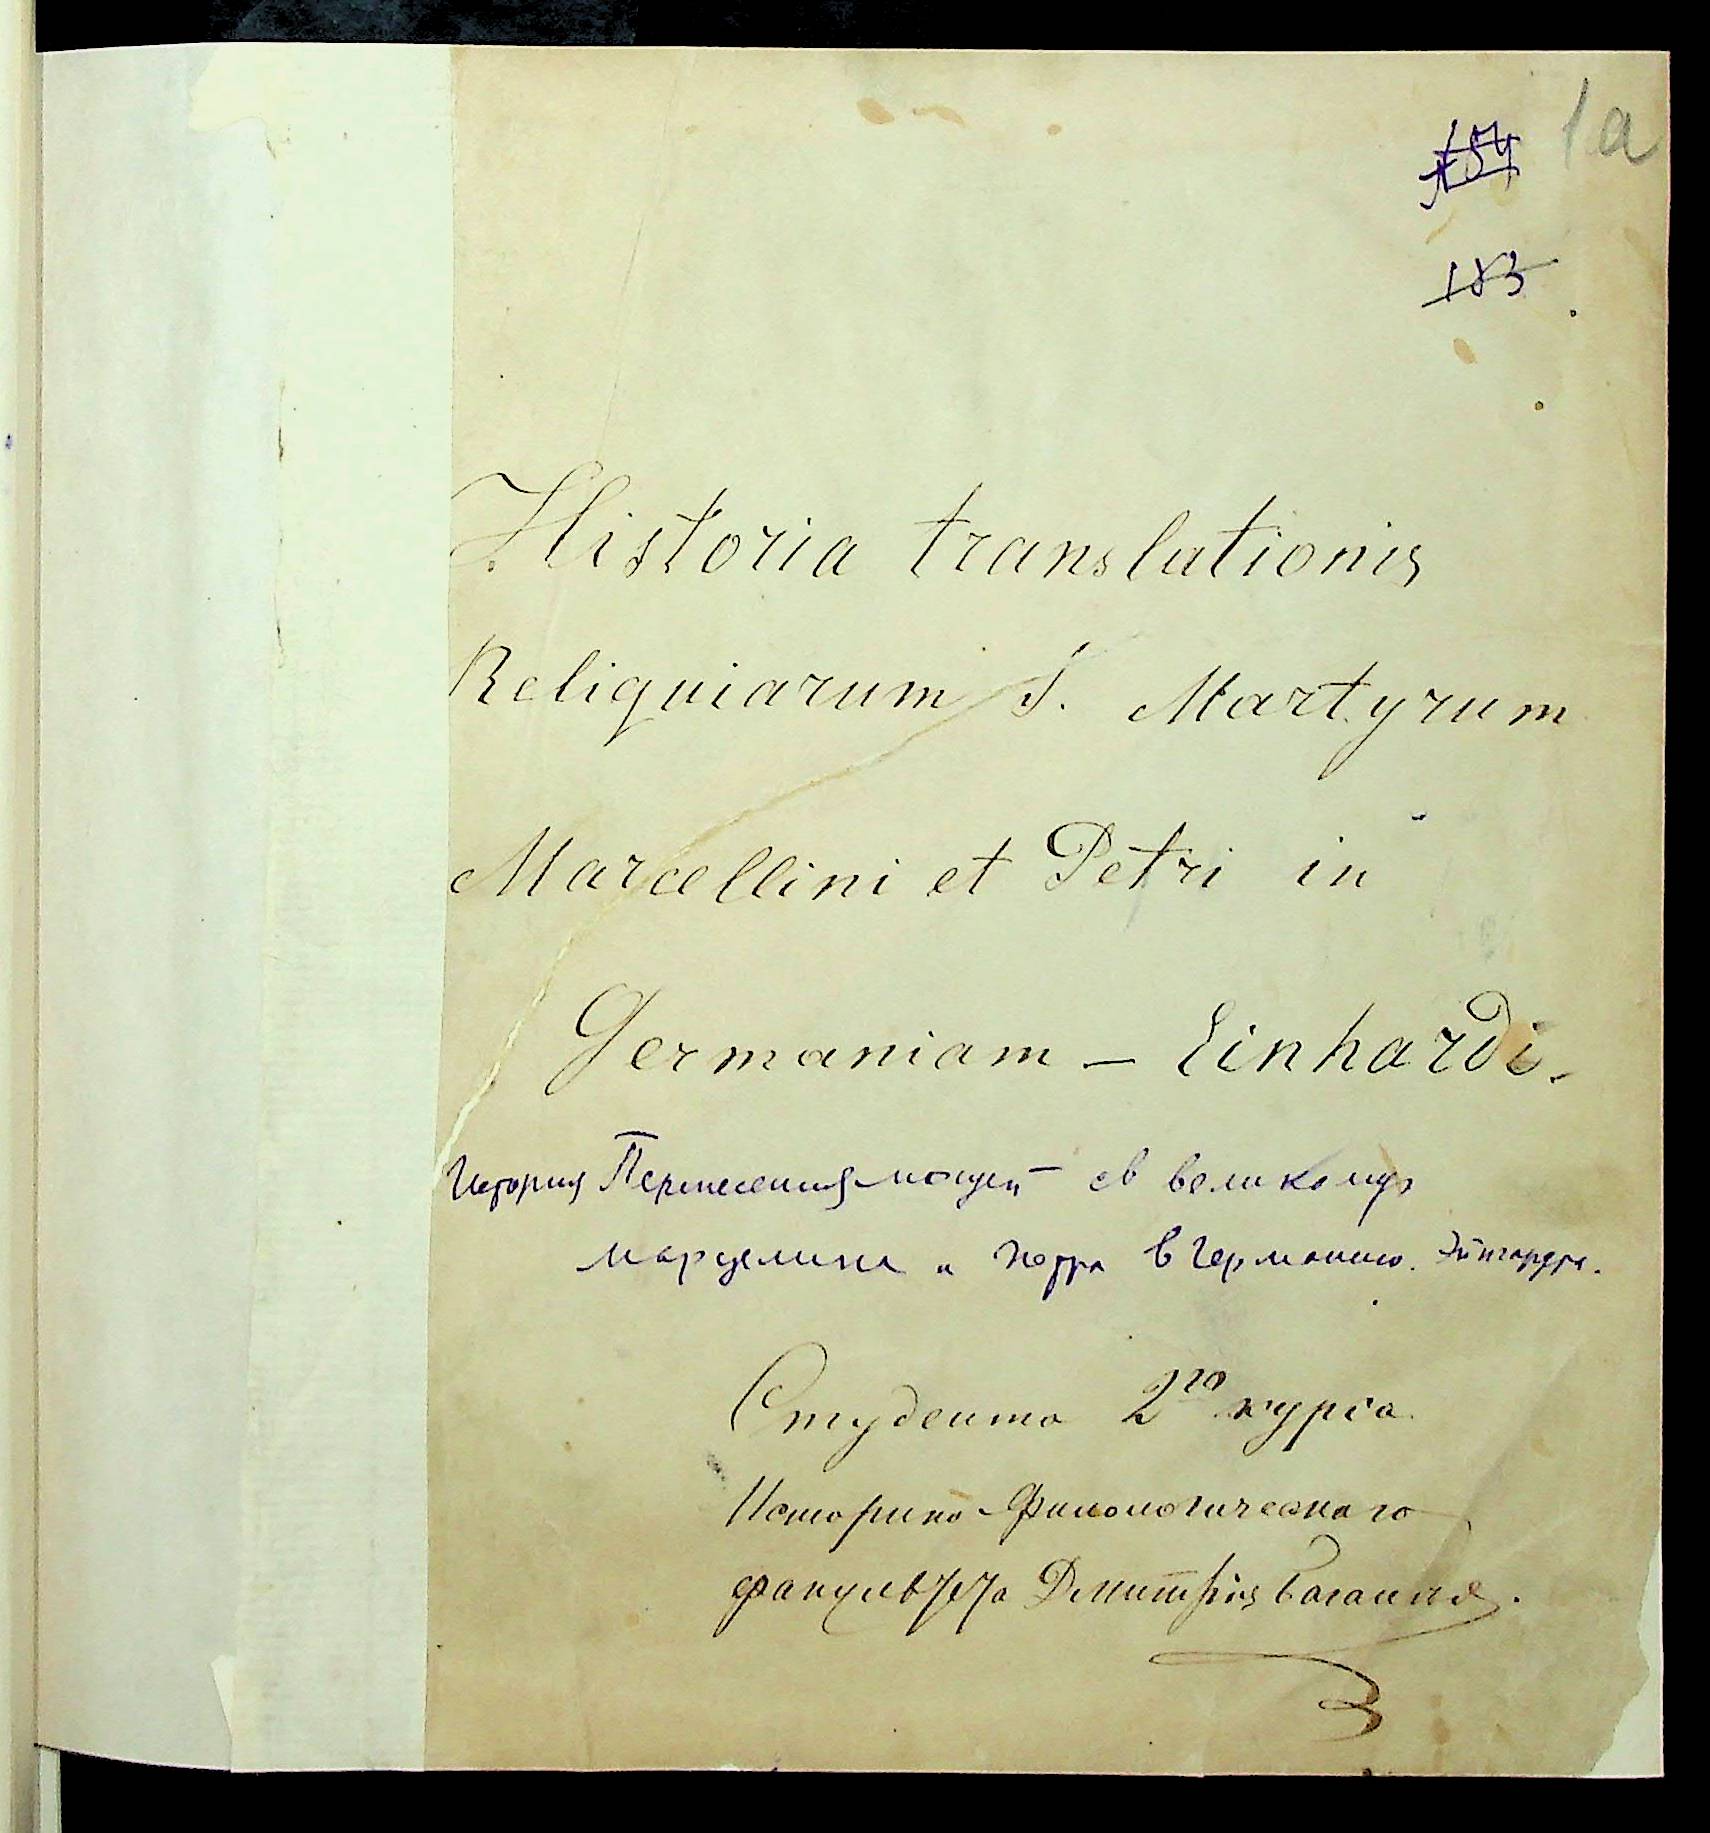 1а
154
183
Historia translationis
Reliquiarum S. Martyrum
Marcellini et Petri in
Germaniam – Einhardi.
История Перенесения мощей св великому
марцелина и Петра в Германию. Эйнгарда.
Студента 2го курса
Историко-Филологическаго
факультета Дмитрія Багалѣя.